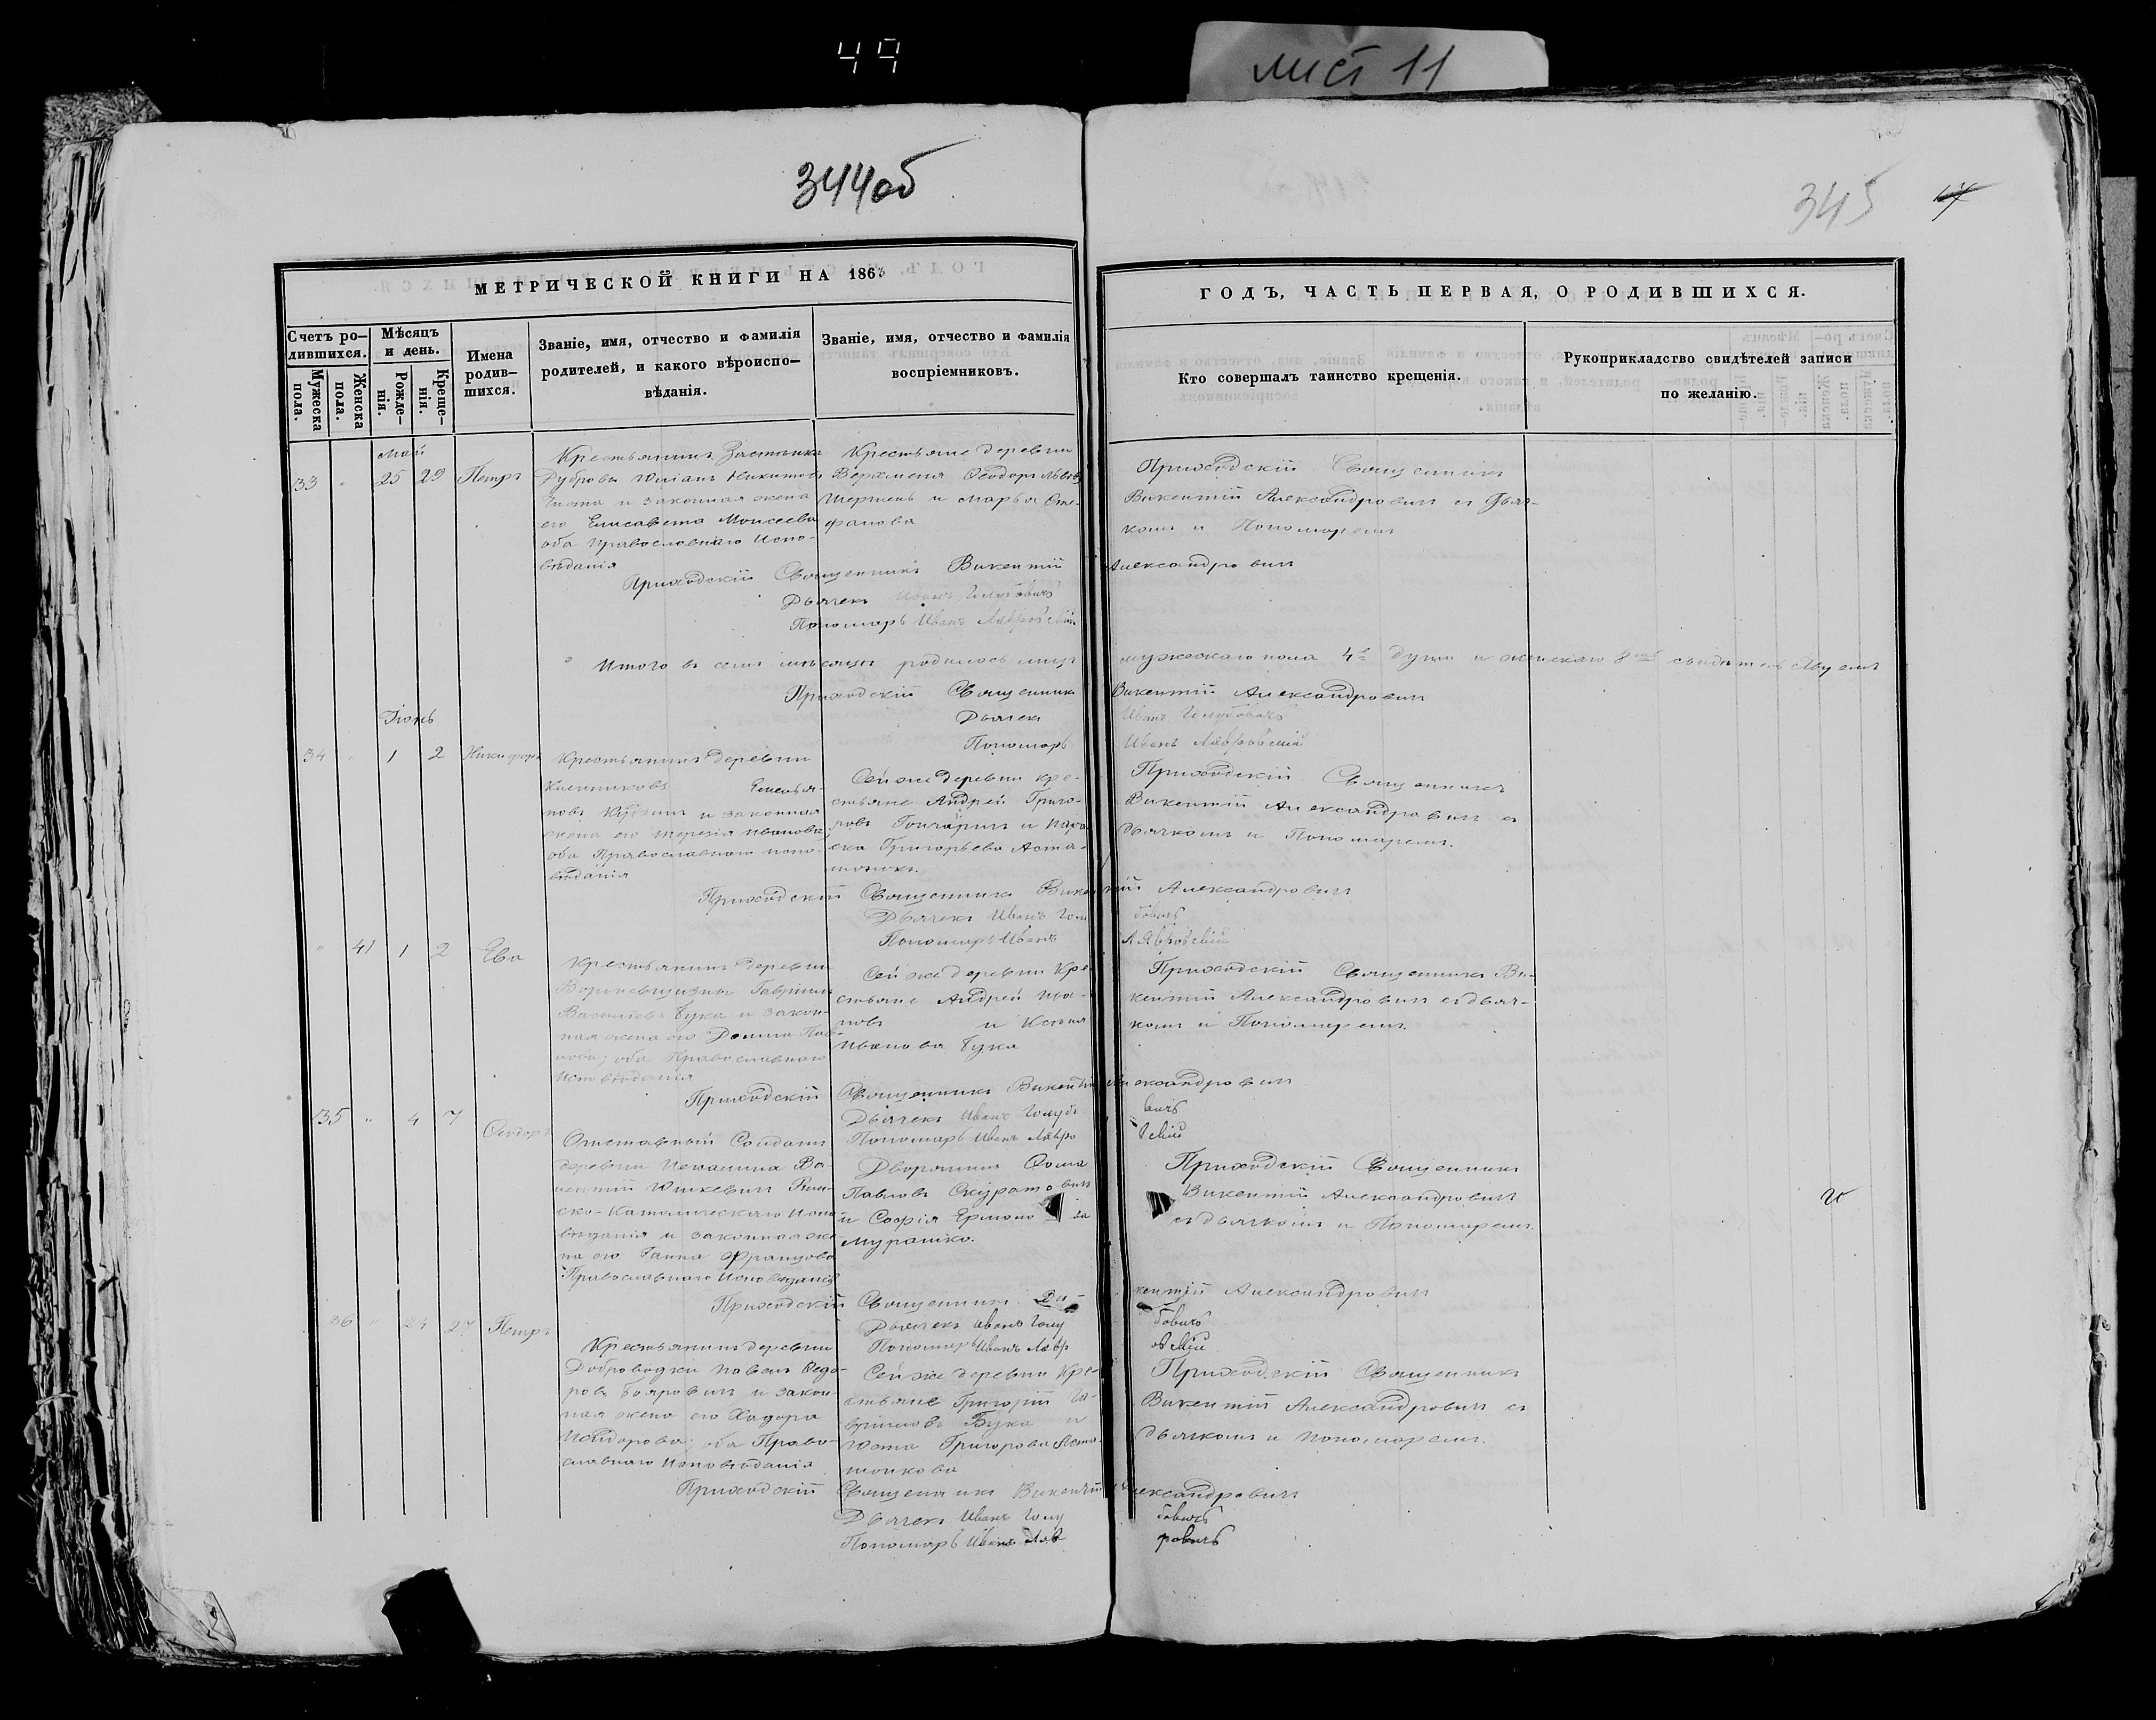 49
лист 11
344об
345
МЕТРИЧЕСКОЙ КНИГИ НА 1863
ГОДЪ, ЧАСТЬ ПЕРВАЯ, О РОДИВШИХСЯ.
Счетъ ро-
дившихся.
Мужеска пола.
Женска пола.
Мѣсяцъ
и день.
Рожде-
нія.
Креще-
нія.
Имена
родив-
шихся.
Званіе, имя, отчество и фамилія
родителей, и какого вѣроиспо-
вѣданія.
Званіе, имя, отчество и фамилія
воспріемниковъ.
Кто совершалъ таинство крещенія.
Рукоприкладство свидѣтелей записи
по желанію.
май
33 " 25 29 Петръ
Крестьянинъ Застѣнка
Дубровы Юліанъ Никитовъ
и законная жена
его Елисавета Моисеева
оба Православнаго Испо-
вѣданія
Крестьяне деревни
Ѳеодоръ
и Марья Сте-
фанова
Приходскій Священникъ
Викентій Александровичъ съ Дьяч-
комъ и Пономаремъ
Приходскій Священникъ Викентій Александровичъ
Дьячекъ Иванъ Голубовичъ
Пономарь Иванъ Лавровскій
Итого въ семъ мѣсяцѣ родилось мужескаго пола 4 души и женскаго 8 свидѣтельствуемъ
Приходскій Священникъ Викентій Александровичъ
Дьячекъ Иванъ Голубовичъ
Пономарь Иванъ Лавровскій
Іюнь
34 " 1 2 Никифоръ
Крестьянинъ деревни
Емелья-
новъ и законная
жена его Терезія Иванова
оба Православнаго испо-
вѣданія
Сей же деревни кре-
стьяне Андрей Григо-
ровъ Гончаринъ и Пара-
ска Григорьева Аста-
шонокъ.
Приходскій Священникъ
Викентій Александровичъ съ
дьячкомъ и Пономаремъ.
Приходскій Священникъ Викентій Александровичъ
Дьячекъ Иванъ Голубовичъ
Пономарь Иванъ Лавровскій
" 41 1 2 Ева
Крестьянинъ деревни
Гавріилъ
Васильевъ Бука и закон-
ная жена его
оба Православнаго
Исповѣданія
Сей же деревни Кре-
стьяне Андрей Ива-
новъ и Ксенія
Иванова Бука
Приходскій Священникъ Ви-
кентій Александровичъ съ дьяч-
комъ и Пономаремъ.
Приходскій Священникъ Викентій Александровичъ
Дьячекъ Иванъ Голубовичъ
Пономарь Иванъ Лавровскій
35 " 4 7 Ѳеодоръ
Отставный Солдатъ
деревни
Юшкевичъ Рим-
ско-Католическаго Испо-
вѣданія и законная же-
на его Ганна Францова
Православнаго Исповѣданія
Дворянинъ Ѳома
Павловъ Скуратовичъ
и Софія
Мурашко.
Приходскій Священникъ
Викентій Александровичъ
съ дьячкомъ и Пономаремъ.
Приходскій Священникъ Викентій Александровичъ
Дьячекъ Иванъ Голубовичъ
Пономарь Иванъ Лавровскій
36 " 24 27 Петръ
Крестьянинъ деревни
Доброводки Павелъ Ѳедо-
ровъ Бояровичъ и закон-
ная жена его Хадора
оба Право-
славнаго Исповѣданія
Сей же деревни Кре-
стьяне Григорій Га-
вриловъ Бука и
Юста Григорова Аста-
шонкова
Приходскій Священникъ
Викентій Александровичъ съ
дьячкомъ и пономаремъ.
Приходскій Священникъ Викентій Александровичъ
Дьячекъ Иванъ Голубовичъ
Пономарь Иванъ